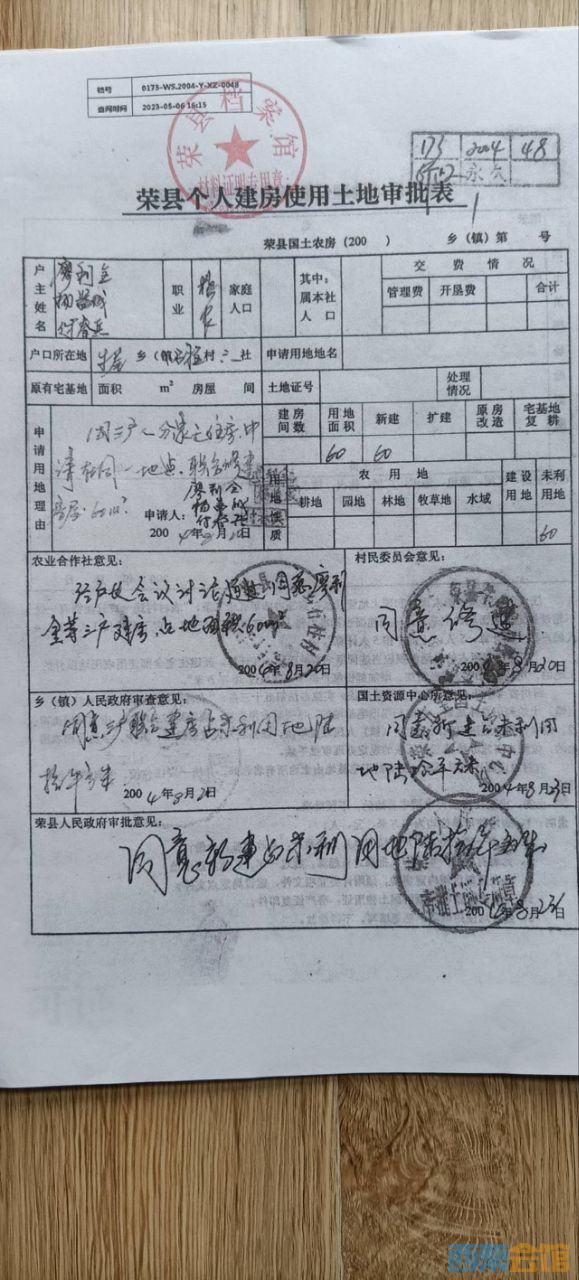 档号 0173-WS.2004-Y-XZ-0048
查阅时间 2023-05-06 16:15
荣县档案馆
材料证明专用章
173 2004 48
永久
荣县个人建房使用土地审批表
荣县国土农房(200 ) 乡(镇)第 号
户主姓名 廖利全 职业 家庭人口 其中:属本社人口 交费情况
管理费 开垦费 合计
户口所在地 乡(镇) 村 社 申请用地地名
原有宅基地 面积 m² 房屋 间 土地证号 处理情况
申请用地理由
建房间数 用地面积 新建 扩建 原房改造 宅基地复耕
60 60
用地性质 农用地 建设用地 未利用地
耕地 园地 林地 牧草地 水域
60
请在同一地点联合修建
申请人: 廖利全
2004年8月20日
农业合作社意见:
经户长会议讨论通过同意廖利
全等三户建房,占地面积60m²
2004年8月20日
村民委员会意见:
同意修建
2004年8月20日
乡(镇)人民政府审查意见:
同意三户联合建房占未利用地陆
拾平方米 2004年8月21日
国土资源中心所意见:
同意新建占未利用
地陆拾平方米
2004年8月23日
荣县人民政府审批意见:
同意新建占未利用地陆拾平方米
2004年8月23日